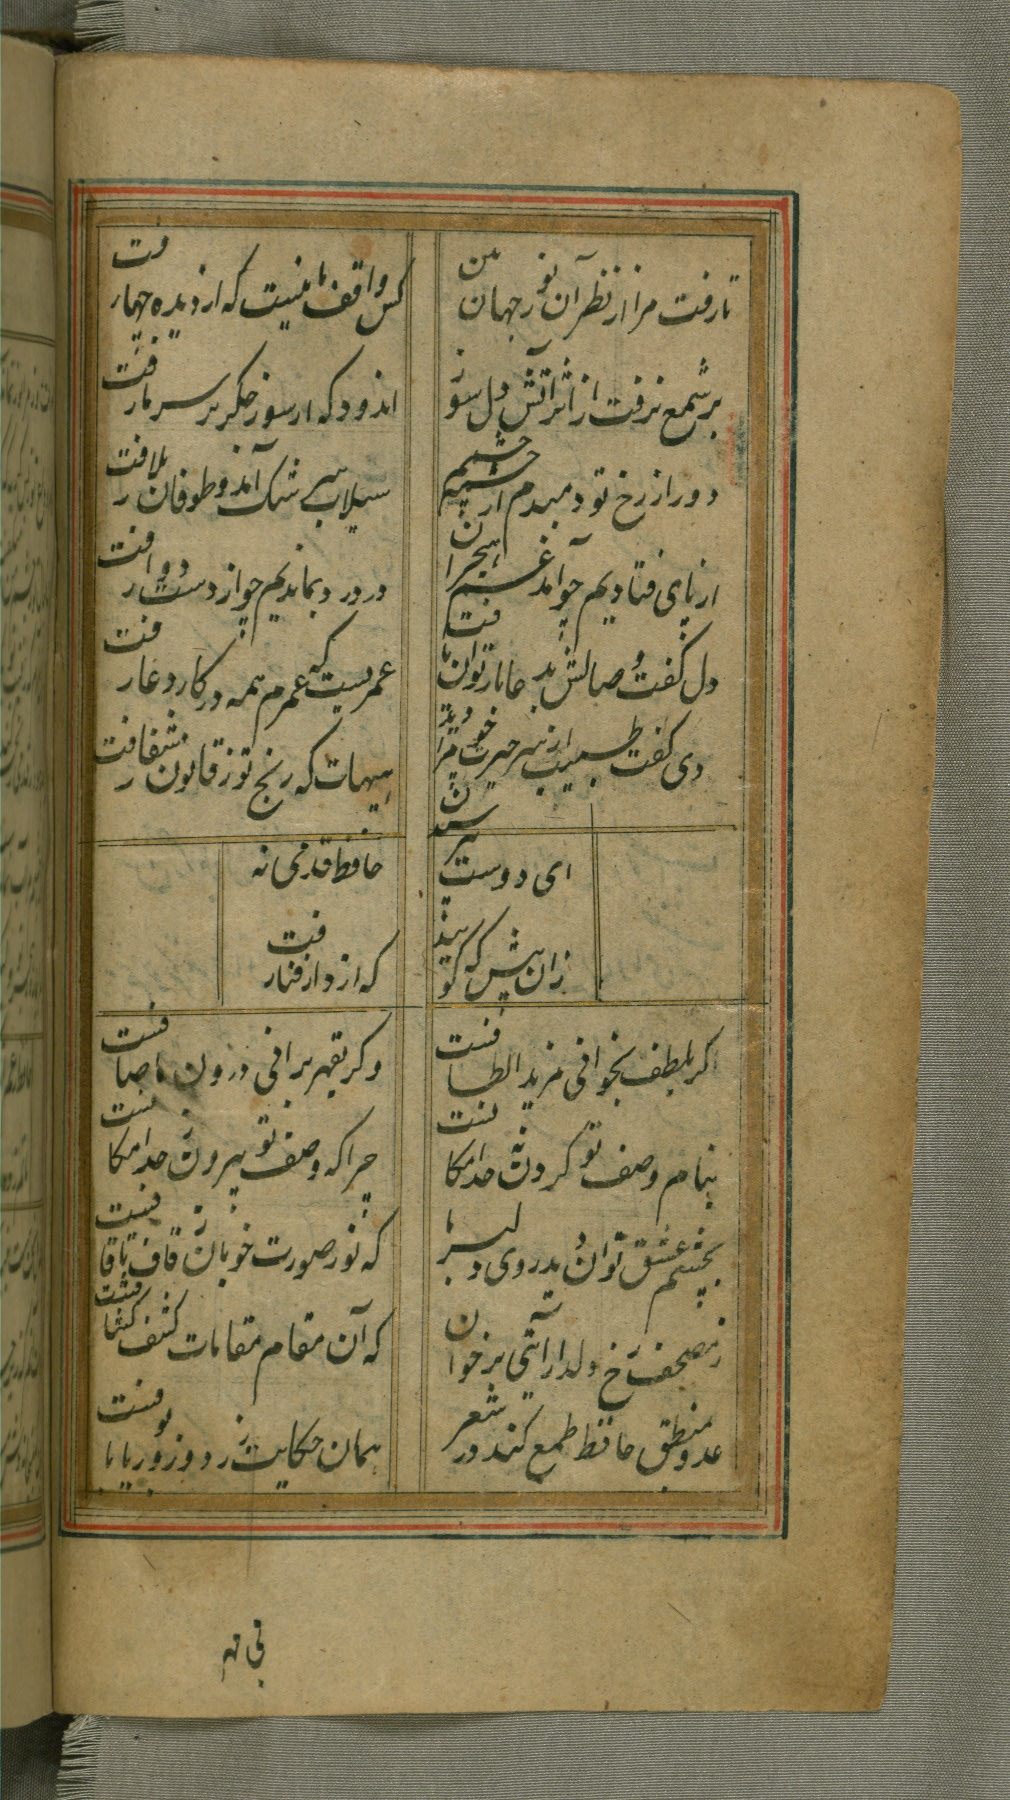 تا رفت مرا از نظر آن نور جهان بین
کس واقف ما نیست که از دیده چها رفت
بر شمع نرفت از اثر آتش دل سوز
اندود که از سوز جگر بر سر ما رفت
دور از رخ تو دمبدم از چشمه چشمم
سیلاب سرشک آمد و طوفان بلا رفت
از پای فتادیم چو آمد غم هجران
در درد بماندیم چو از دست دوا رفت
دل گفت وصالش بدعا باز توان یافت
عمریست که عمرم همه در کار دعا رفت
دی گفت طبیب از سر حسرت چو مرا دید
هیهات که رنج تو ز قانون شفا رفت
ای دوست بپرسیدن
حافظ قدمی نه
زان پیش که گویند
که از دار فنا رفت
گر بلطف بخوانی مزید الطافست
وگر بقهر برانی درون ما صافست
بنامه وصف تو کردن نه حد امکانست
چرا که وصف تو بیرون ز حد امکانست
بچشم عشق توان دید روی دلبر ما
که نور صورت خوبان ز قاف تا قافست
ز مصحف رخ دلدار آیتی بر خوان
که آن مقام مقامات کشف کشافست
عدو منطق حافظ طمع کند در شعر
همان حکایت زردوز و بوریا بافست